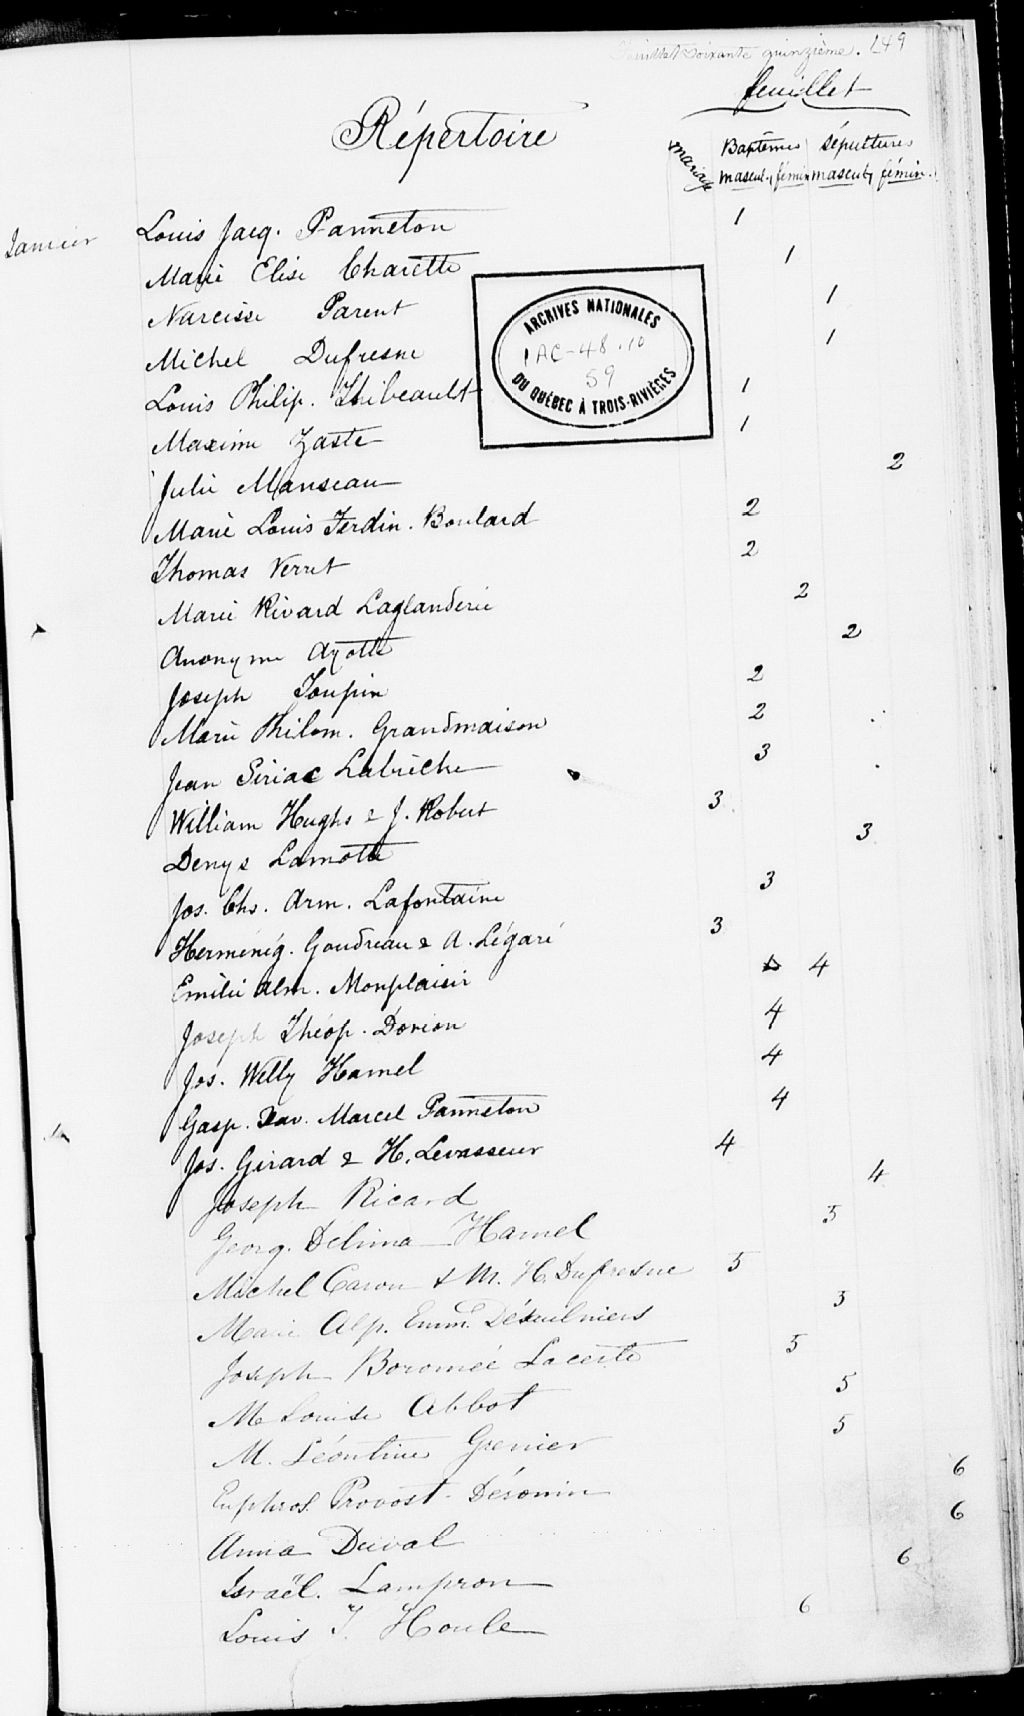 feuillet soixante quinzième. 149
feuillet
Répertoire
mariage Baptêmes sépultures
mascul. fémin mascul, fémin.
Janvier Louis Jacq. Panneton 1
Marie Elise Charette 1
Narcisse Parent 1
Michel Dufresne 1
Louis Philip. Thibeault 1
Maxime Zaste 1
Julie Manseau 2
Marie Louis Ferdin. Boulard 2
Thomas Verret 2
Marie Rivard Laglanderie 2
Anonyme Ayotte 2
Joseph Toupin 2
Marie Philom. Grandmaison 2
Jean Siriac Labrèche 3
William Hughs & J. Robert 3
Denys Lamotte 3
Jos. Chs. Arm. Lafontaine 3
Herménég. Goudreau & A. Légaré 3
Emilie Alm. Monplaisir 4
Joseph Théop. Dorion 4
Jos. Willy Hamel 4
Gasp. Xav. Marcel Panneton 4
Jos. Girard & H. Levasseur 4
Joseph Ricard 4
Georg. Délima Hamel 5
Michel Caron & M. H. Dufresne 5
Marie Alp. Emm. Désaulniers 5
Joseph Boromée Lacerte 5
M Louise Abbot 5
M. Léontine Grenier 5
Euphros. Provost 6
Anna Duval 6
Israël. Lampron 6
Louis J. Houle 6
ARCHIVES NATIONALES
1AC-48.10
59
DU QUÉBEC À TROIS-RIVIÈRES